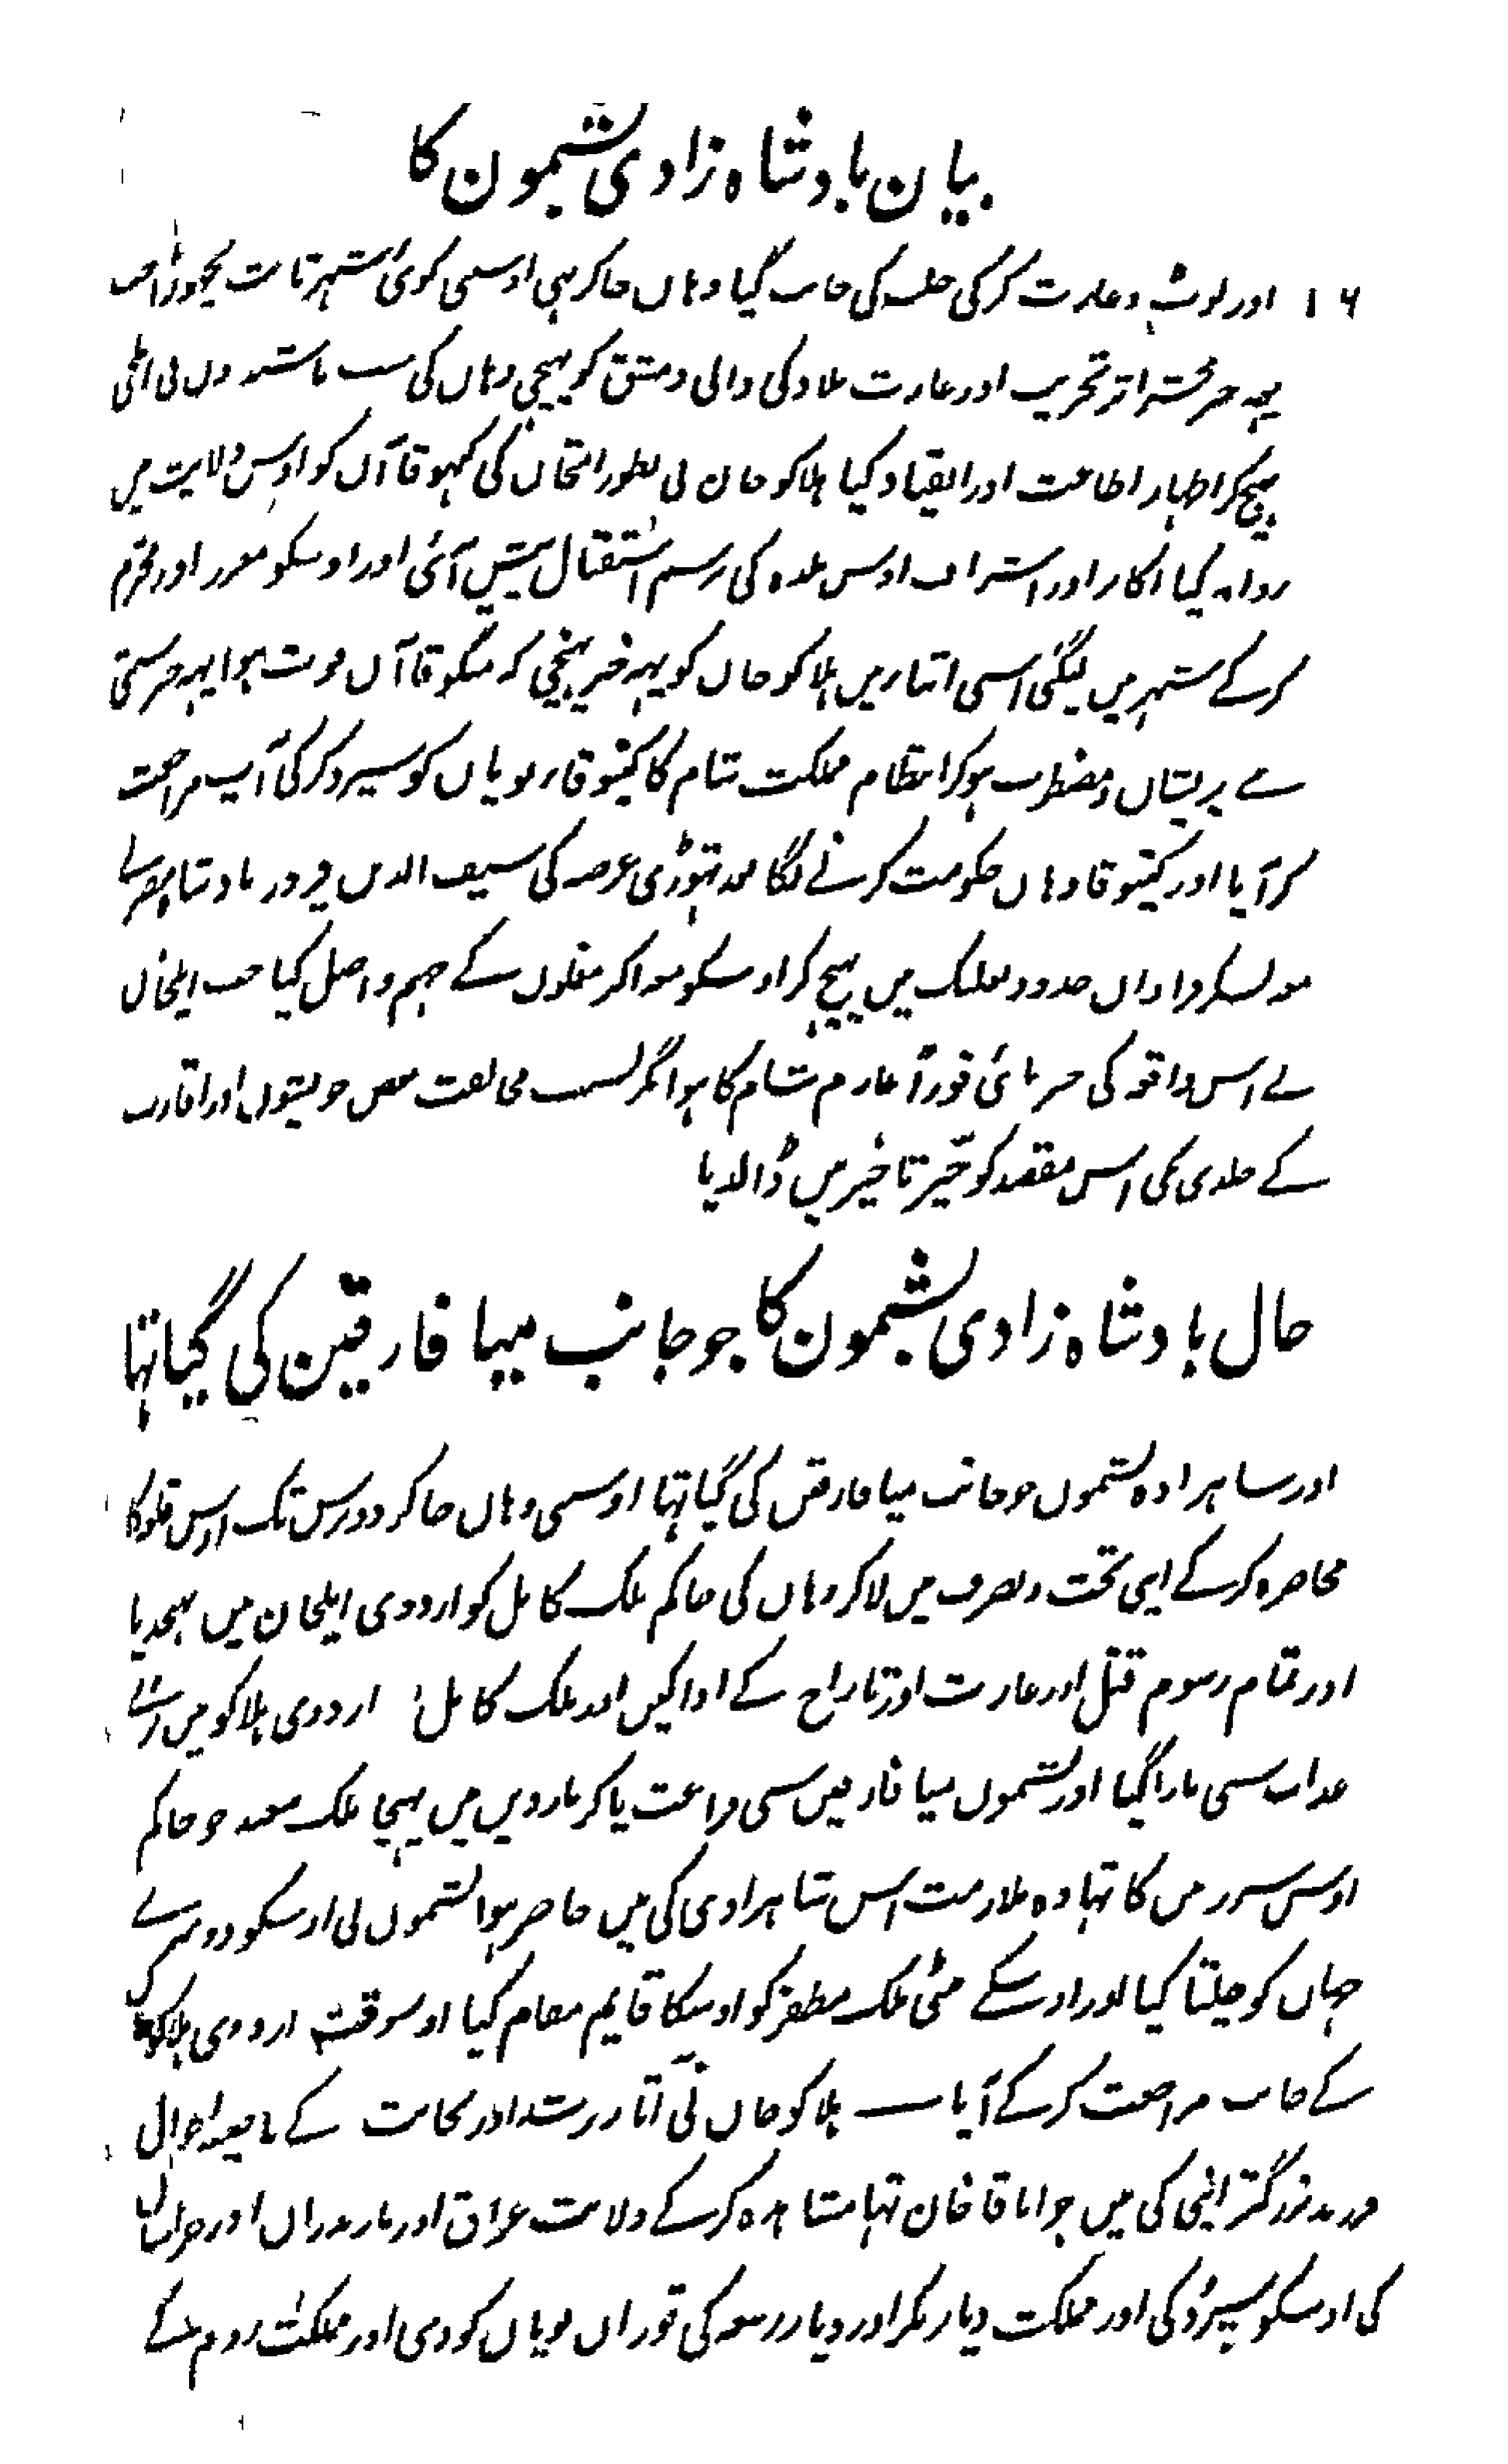 بیان بادشاہ زادی یشمون کا
۱۶ اور لوٹ و غارت کر کی حلب کی جانب گیا وہاں جا کر بہی اوسی کوئی شہر ثابت نچھوڑا جب
یہہ خبر تخریب اور غارت بلاد کی والی دمشق کو پہنچی وہاں کی سب باشندوں نی ایلچی
بہیج کر اظہار اطاعت اور انقیاد کیا ہلاکو خان نی بطور امتحان کی کہوقاآن کو اوس ولایت میں
روانہ کیا اکابر اور اشراف اوس بلدہ کی رسم استقبال پیش آئی اور اوسکو معزز اور محترم
کر کے شہر میں لیگئی اسی اثنار میں ہلاکو خان کو یہہ خبر پہنچی کہ منگو قاآن فوت ہوا یہہ خبر سنتی
سے پریشان و مضطرب ہو کر انتظام مملکت شام کا کیتبوقا نویان کو سپرد کر کی آپ مراجعت
کر آیا اور کیتبوقا وہاں حکومت کرنے لگا بعد تہوڑی عرصہ کی سیف الدین بادشاہ مصر نے
معہ لشکر فراوان حدود ملک میں پہیج کر اوسکو معہ اکثر مغلوں کے جہنم واصل کیا جب ایلخان
نے اس واقعہ کی خبر پائی فوراً عازم شام کا ہوا مگر بسبب مخالفت بعض خویشوں اور اقارب
کے جلدی کی اس مقصد کو حیّز تاخیر میں ڈالدیا
حال بادشاہ زادی یشمون کا جو جانب میبا فارقین کی گیا تہا
اور ساہزادہ یشمون جو جانب میافارقین کی گیا تہا اوسی وہاں جا کر دو برس تک اوس قلعہ کا
محاصرہ کر کے اپنی تحت و تصرف میں لا کر وہاں کی حاکم ملک کامل کو اردوی ایلخان میں بہجدیا
اور تمام رسوم قتل اور غارت اور تاراج کے ادا کیں بعد ملک کامل اردوی ہلاکو میں بڑے
عذاب سی مارا گیا اور یشمون میا فارقین سی فراغت پا کر ماردین میں پہنچا ملک سعید جو حاکم
اوس سرزمین کا تہا وہ ملازمت اس شاہزادی کی میں حاضر ہوا یشمون نی اوسکو دوسرے
جہاں کو چلتا کیا اور اوسکے بیٹی ملک مظفر کو اوسکا قایم مقام کیا اوسوقت اردوی ہلاکو
کے جانب مراجعت کر کے آیا ہلاکو خان نی آثار رشد اور نجابت کے احوال
فرزند بزرگتر اپنی کی میں جو اباقا خان تہا مشاہدہ کر کے ولایت عراق اور مازندران اور خراسان
کی اوسکو سپرد کی اور مملکت دیار بکر اور دیار ربیعہ کی توران نویان کو دی اور مملکت روم کے